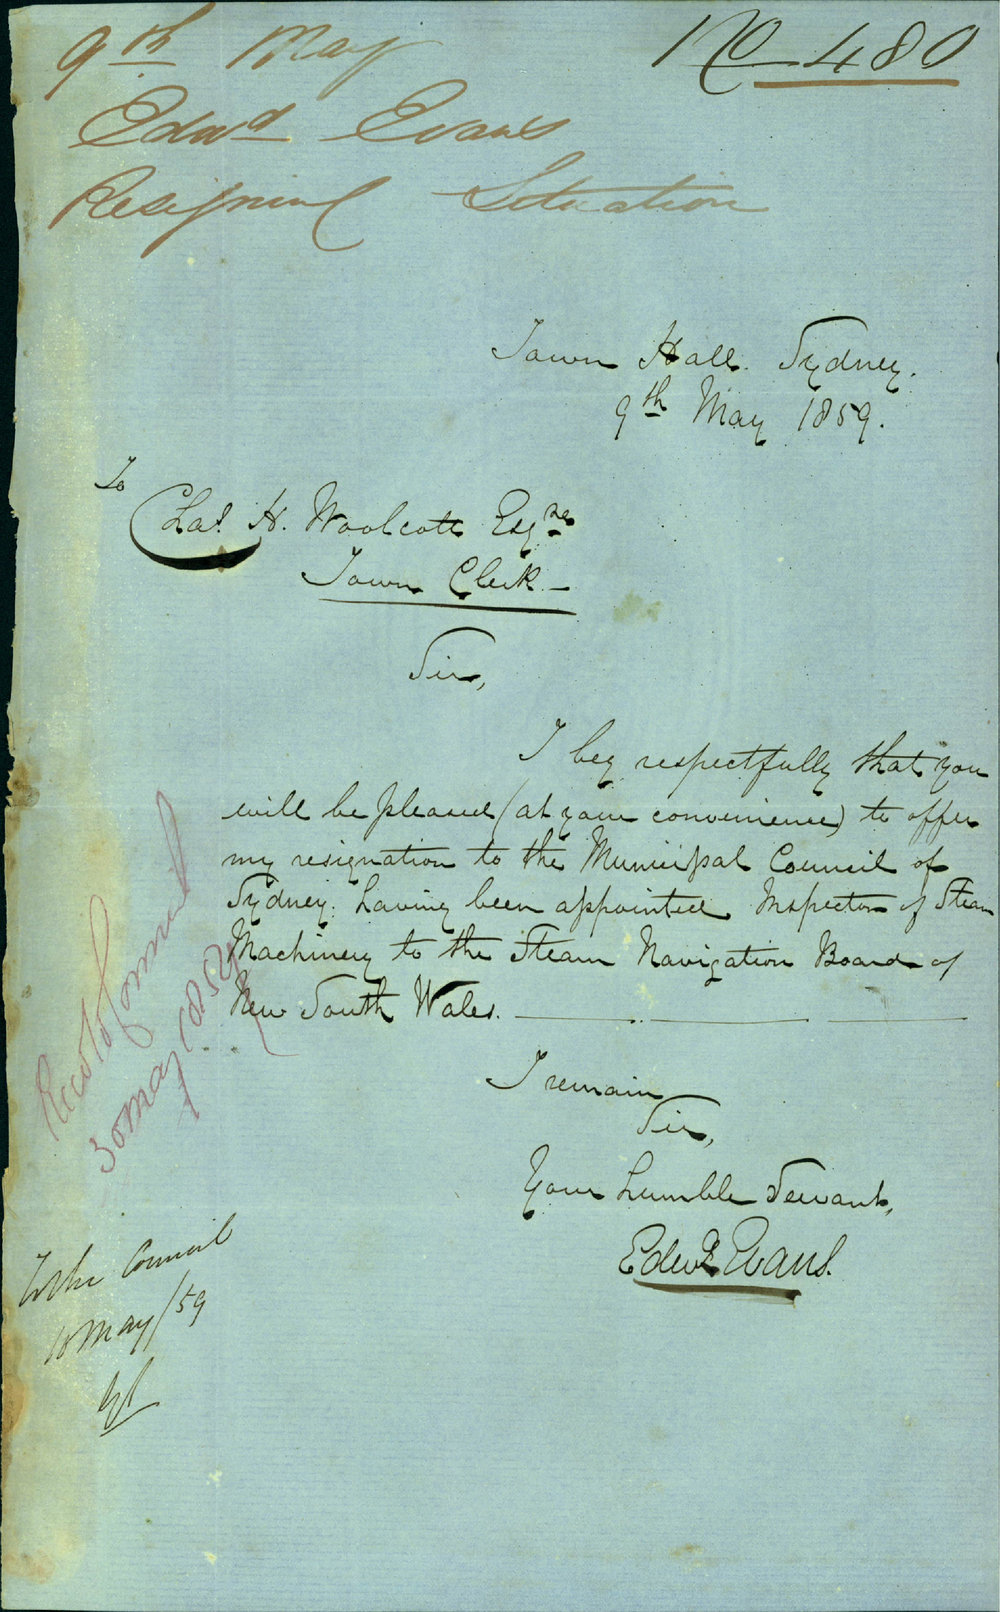 9th May
No 480
Edwd Evans
Resigning Situation
Town Hall. Sydney.
9th May 1859.
To
Chas. H. Woolcott Esqre
Town Clerk -
Sir,
I beg respectfully that you
will be pleased (at your convenience) to offer
my resignation to the Municipal Council of
Sydney. having been appointed Inspector of Steam
Machinery to the Steam Navigation Board of
New South Wales.
I remain
Sir,
Your humble Servant,
Edwd Evans.
Council
30 May 1859
To the Council
10 May/59